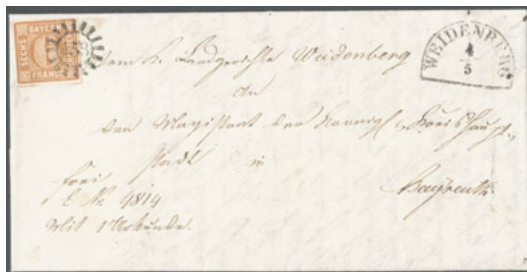 BAYERN
SECHS
KREUZER
FRANCO
WEIDENBERG
4
5
Vom K. Landgerichte Weidenberg
an
den Magistrat der Königl. Kreishaupt-
stadt in
frei Bayreuth
E. N. 4814
Mit 1 Urkunde.